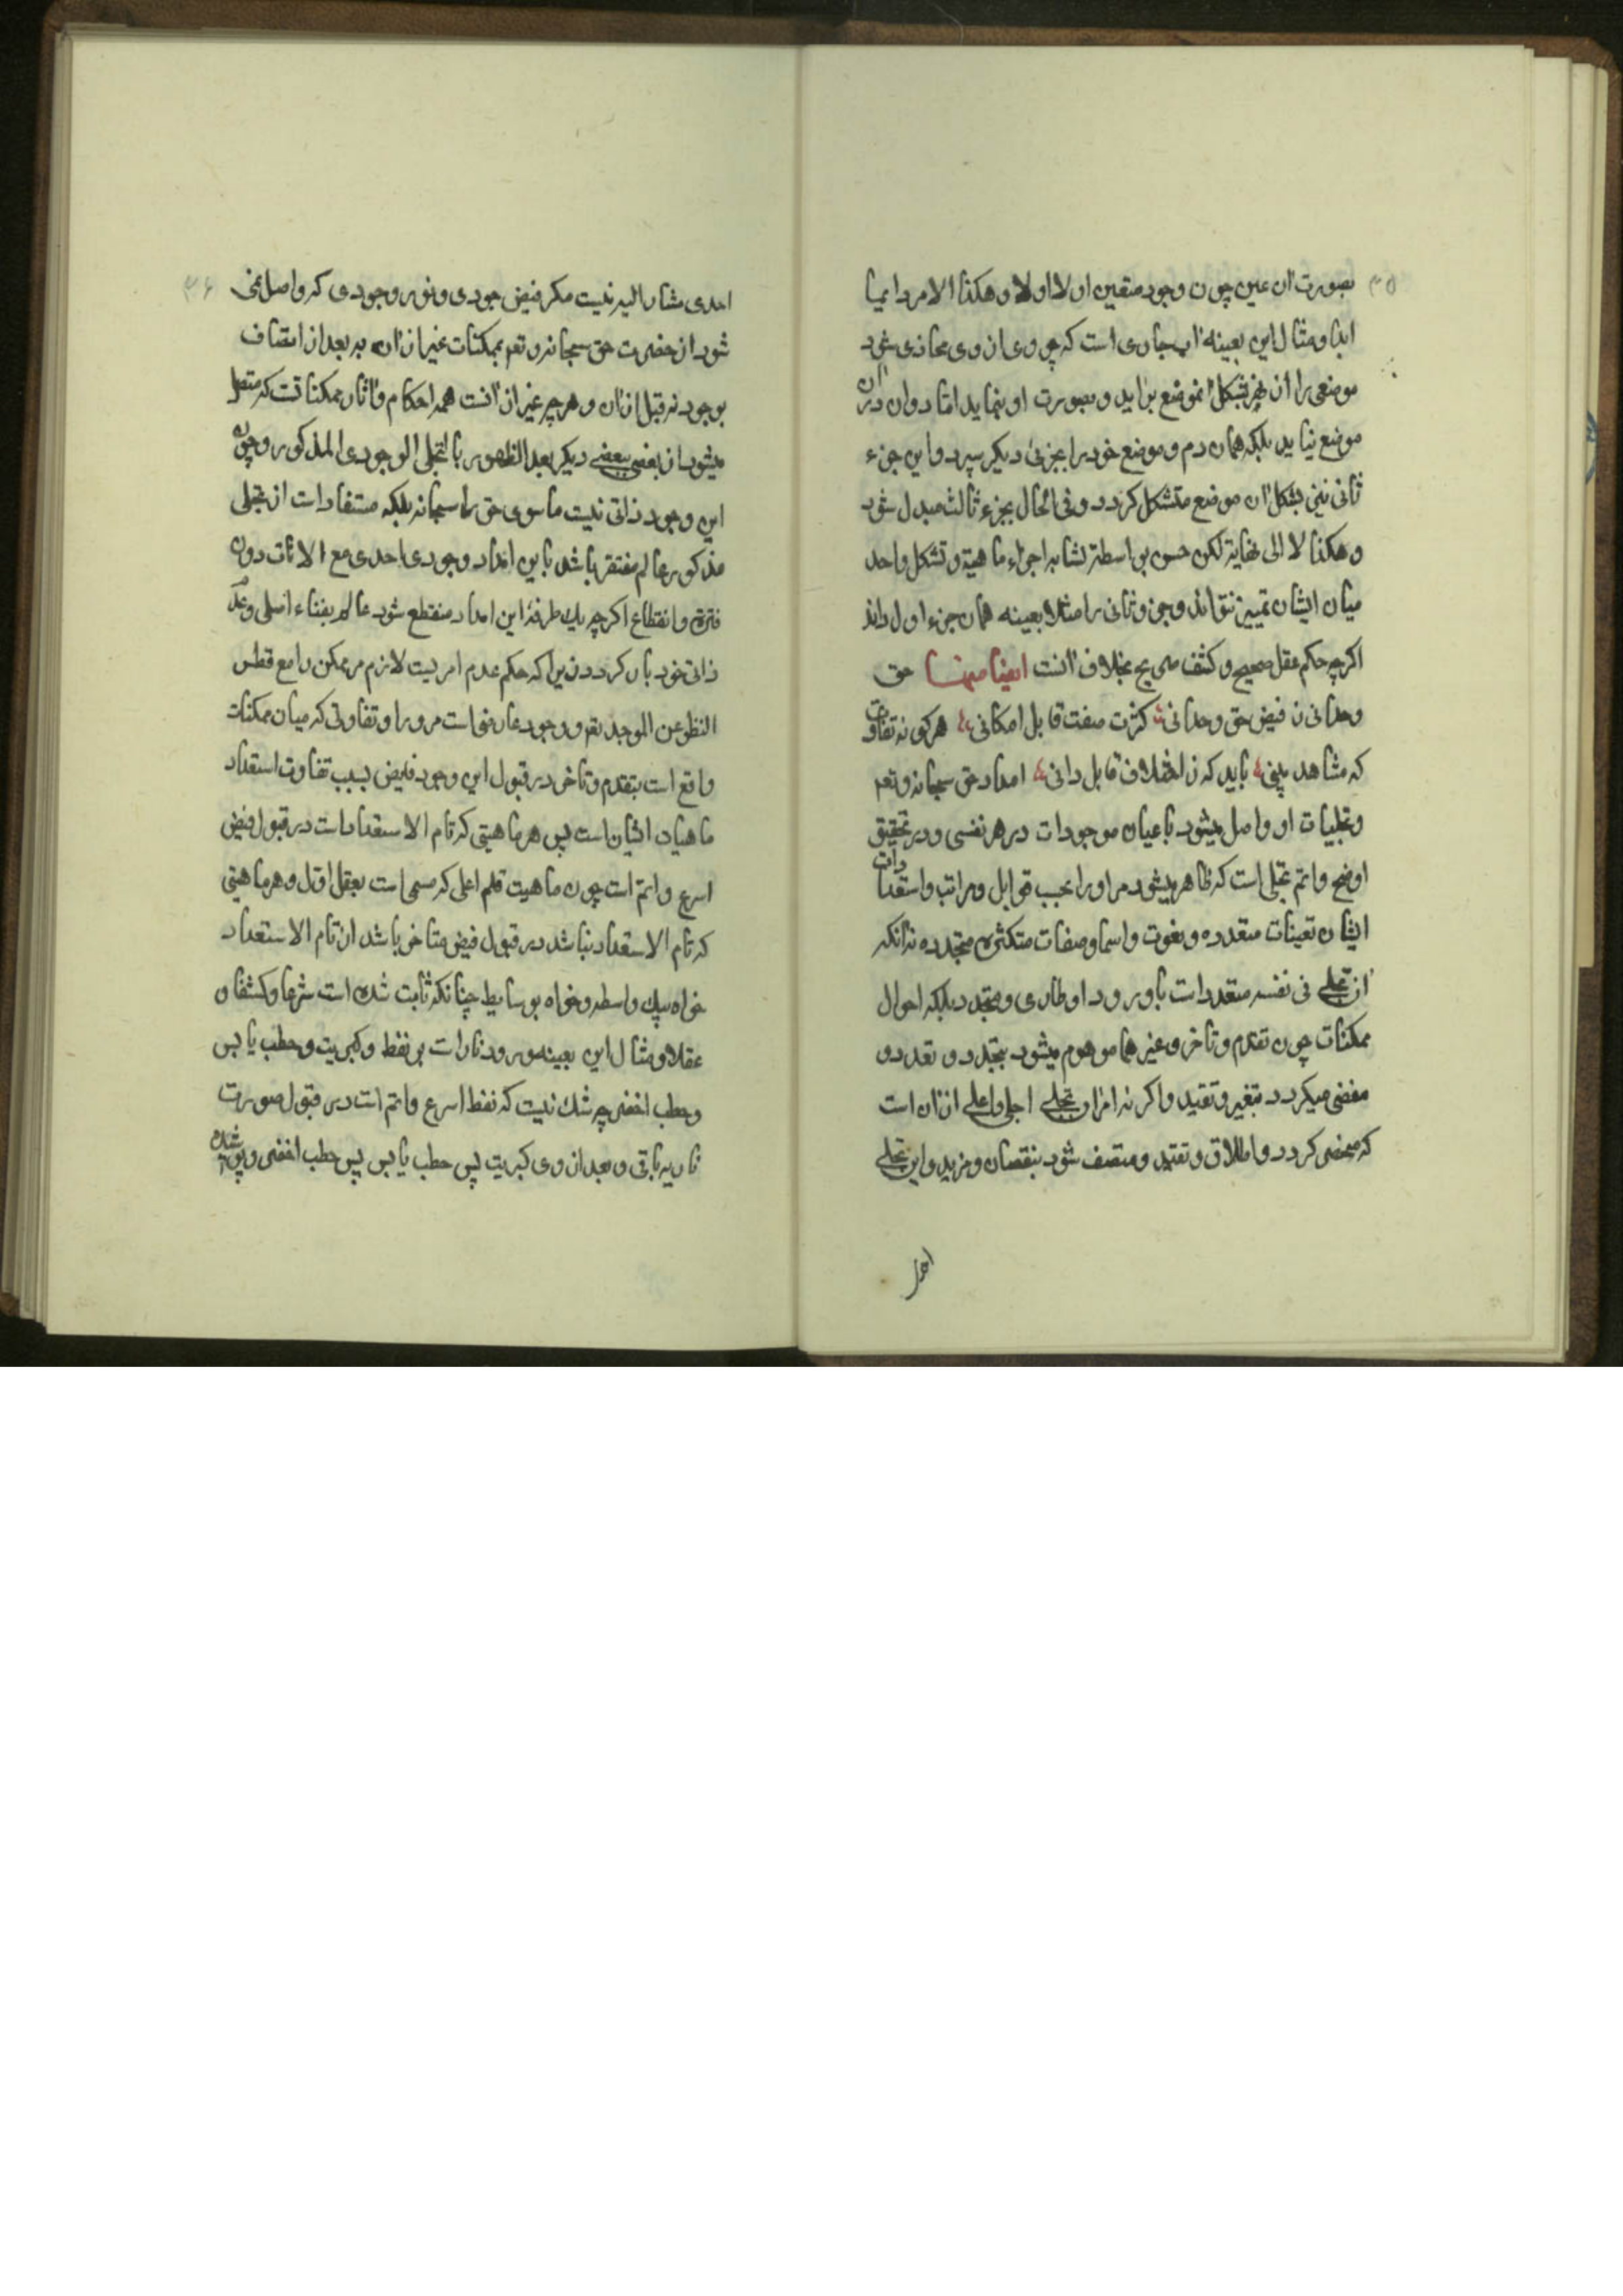 ۳۵
بصورت آن عین چون وجود متعین اولا اولا وهکذا الامر دایما
ابدا ومثال این بعینه آب جاری است که چو وی از وی محاذی شود
موضعی را ان جزء بشکل آنموضع براید و بصورت او بنماید اما دو ان در ان
موضع نیاید بلکه همان دم و موضع خود را بجزئی دیگر سپرد و این جزء
ثانی نیز بشکل ان موضع متشکل کردد وفی الحال بجزء ثالث مبدل شود
و هکذا لا الی نهایة لکن حس بواسطۀ تشابه اجزاء ماهیة و تشکل واحد
میان ایشان تمییز نتواند وجزو ثانی را مثلا بعینه همان جزء اول داند
اکرچه حکم عقل صحیح و کشف صریح بخلاف آنست ایضا منها حق
وحدانی ن فیض حق وحدانی کثرت صفت قابل امکانی هرکونه تفاوت
که مشاهد بینی باید که ز اختلاف قابل دانی امداد حق سبحانه وتعه
وتجلیات او واصل میشود باعیان موجودات در هر نفسی و در تحقیق
اوضح واتم تجلی است که ظاهر میشود مر او را بحسب قوابل ومراتب واستعدادات
ایشان تعینات متعدده ونعوت واسما وصفات متکثره متجدده نه انکه
آن تجلی فی نفسه متعدد است یا ورود او طاری ومتجدد بلکه احوال
ممکنات چون تقدم وتاخر وغیر هما موهوم میشود بتجدد و تعدد و
مفضی میکردد بتغیر وتقید واکر نه امر ان تجلی اجلی واعلی از ان است
که منحصر کردد واطلاق وتقید ومتصف شود بنقصان ومزید واین تجلی
احد
۳۶
احدی مشار الیه نیست مکر فیض جودی ونور وجودی که واصل نمی
شود از حضرت حق سبحانه وتعه بممکنات غیر از ان نه بعد از اتصاف
بوجود نه قبل از ان و هر چه غیر از آنست همه احکام وآثار ممکناتست که متصل
میشود از بعضی ببعضی دیکر بعد الظهور بالتجلی الوجودی المذکور وچون
این وجود ذاتی نیست ماسوی حق را سبحانه بلکه مستفاد است از تجلی
مذکور عالم مفتقر باشد باین امداد وجودی احدی مع الانات دون
فترة وانقطاع اکرچه یك طرفة این امداد منقطع شود عالم بفناء اصلی وعدم
ذاتی خود باز کردد زیرا که حکم عدم امریست لازم مر ممکن را مع قطع
النظر عن الموجد تعه و وجود عارضی است مر و را وتفاوتی که میان ممکنات
واقع است بتقدم وتاخر در قبول این وجود فایض بسبب تفاوت استعداد
ماهیات ایشان است پس هر ماهیتی که تام الاستعداد است در قبول فیض
اسرع واتم است چون ماهیت قلم اعلی که مسمی است بعقل اول وهر ماهیتی
که تام الاستعداد نباشد در قبول فیض متاخر باشد از تام الاستعداد
خواه بیك واسطه وخواه بوسایط چنانکه ثابت شده است شرعا وکشفا و
عقلا ومثال این بعینه ورود نار است بر نفط وکبریت وحطب یابس
وحطب اخضر چه شك نیست که نفط اسرع واتم است در قبول صورت
ناریه باقی وبعد از وی کبریت پس حطب یابس پس حطب اخضر